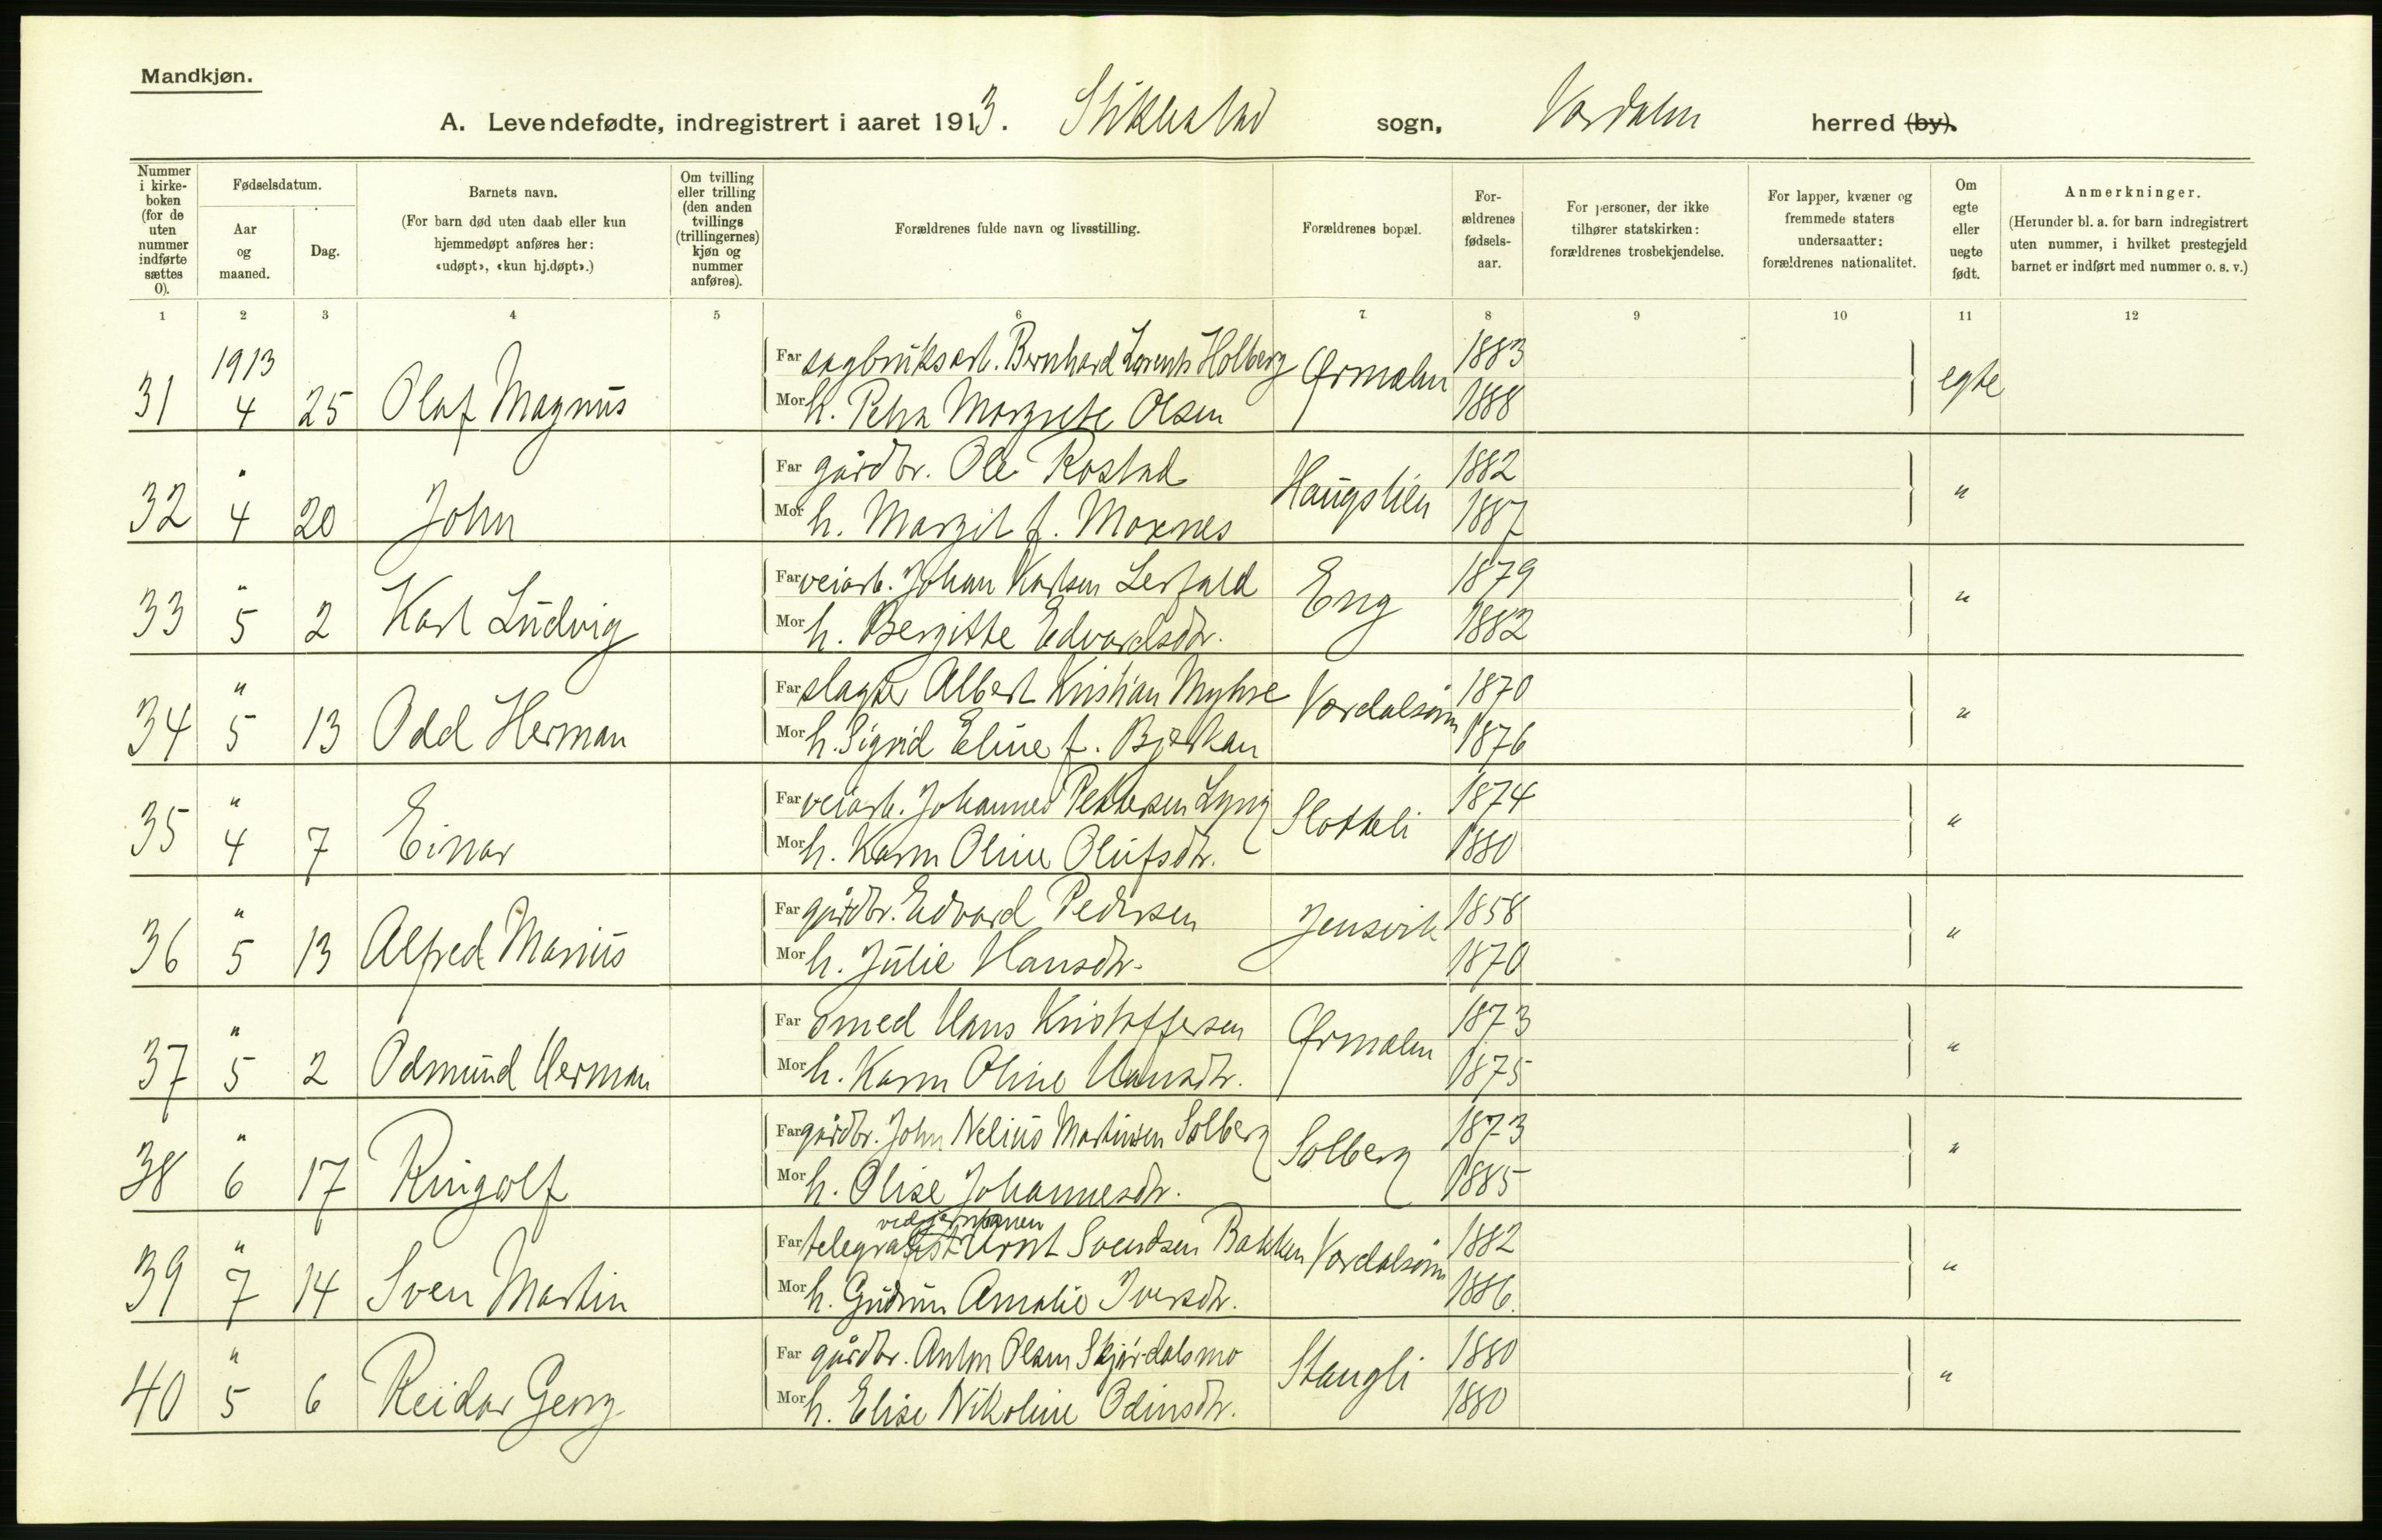 Mandkjøn.
A. Levendefødte, indregistrert i aaret 1913. Stiklestad sogn, Værdalen herred (by).
Nummer i kirke-boken (for de uten nummer indførte sættes 0).
Fødselsdatum.
Aar og maaned.
Dag.
Barnets navn.
(For barn død uten daab eller kun hjemmedøpt anføres her: «udøpt», «kun hj.døpt».)
Om tvilling eller trilling (den anden tvillings (trillingernes) kjøn og nummer anføres).
Forældrenes fulde navn og livsstilling.
Forældrenes bopæl.
For-ældrenes fødsels-aar.
For personer, der ikke tilhører statskirken: forældrenes trosbekjendelse.
For lapper, kvæner og fremmede staters undersaatter: forældrenes nationalitet.
Om egte eller uegte født.
Anmerkninger.
(Herunder bl. a. for barn indregistrert uten nummer, i hvilket prestegjeld barnet er indført med nummer o. s. v.)
1 2 3 4 5 6 7 8 9 10 11 12
1913 Far sagbruksarb. Bernhard Lorents Holberg Ørmelen 1883
31 4 25 Olaf Magnus Mor h. Petra Margrete Olsen 1888 egte
" Far gårdbr. Ole Rostad Haugslien 1882
32 4 20 John Mor h. Margit f. Moxnes 1887 "
" Far veiarb. Johan Karlsen Lerfald Eng 1879
33 5 2 Karl Ludvig Mor h. Bergitte Edvardsdtr. 1882 "
" Far slagter Albert Kristian Myhre Værdalsøren 1870
34 5 13 Odd Herman Mor h. Sigrid Eline f. Bjerkan 1876 "
" Far veiarb. Johannes Pettersen Lyng Slotteli 1874
35 4 7 Einar Mor h. Karen Oline Olufsdtr. 1880 "
" Far gårdbr. Edvard Pedersen Jensvik 1858
36 5 13 Alfred Marius Mor h. Julie Hansdtr. 1870 "
" Far smed Hans Kristoffersen Ørmelen 1873
37 5 2 Odmund Herman Mor h. Karen Oline Hansdtr. 1875 "
" Far gårdbr. John Nelius Martinsen Solberg Solberg 1873
38 6 17 Ringolf Mor h. Olise Johannesdtr. 1885 "
ved jernbanen
" Far telegrafist Arnt Svendsen Bakken Værdalsøren 1882
39 7 14 Sven Martin Mor h. Gudrun Amalie Iversdtr. 1886. "
" Far gårdbr. Anton Olsen Skjørdalsmo Stangli 1880
40 5 6 Reidar Georg Mor h. Elise Nikoline Odinsdtr. 1880 "